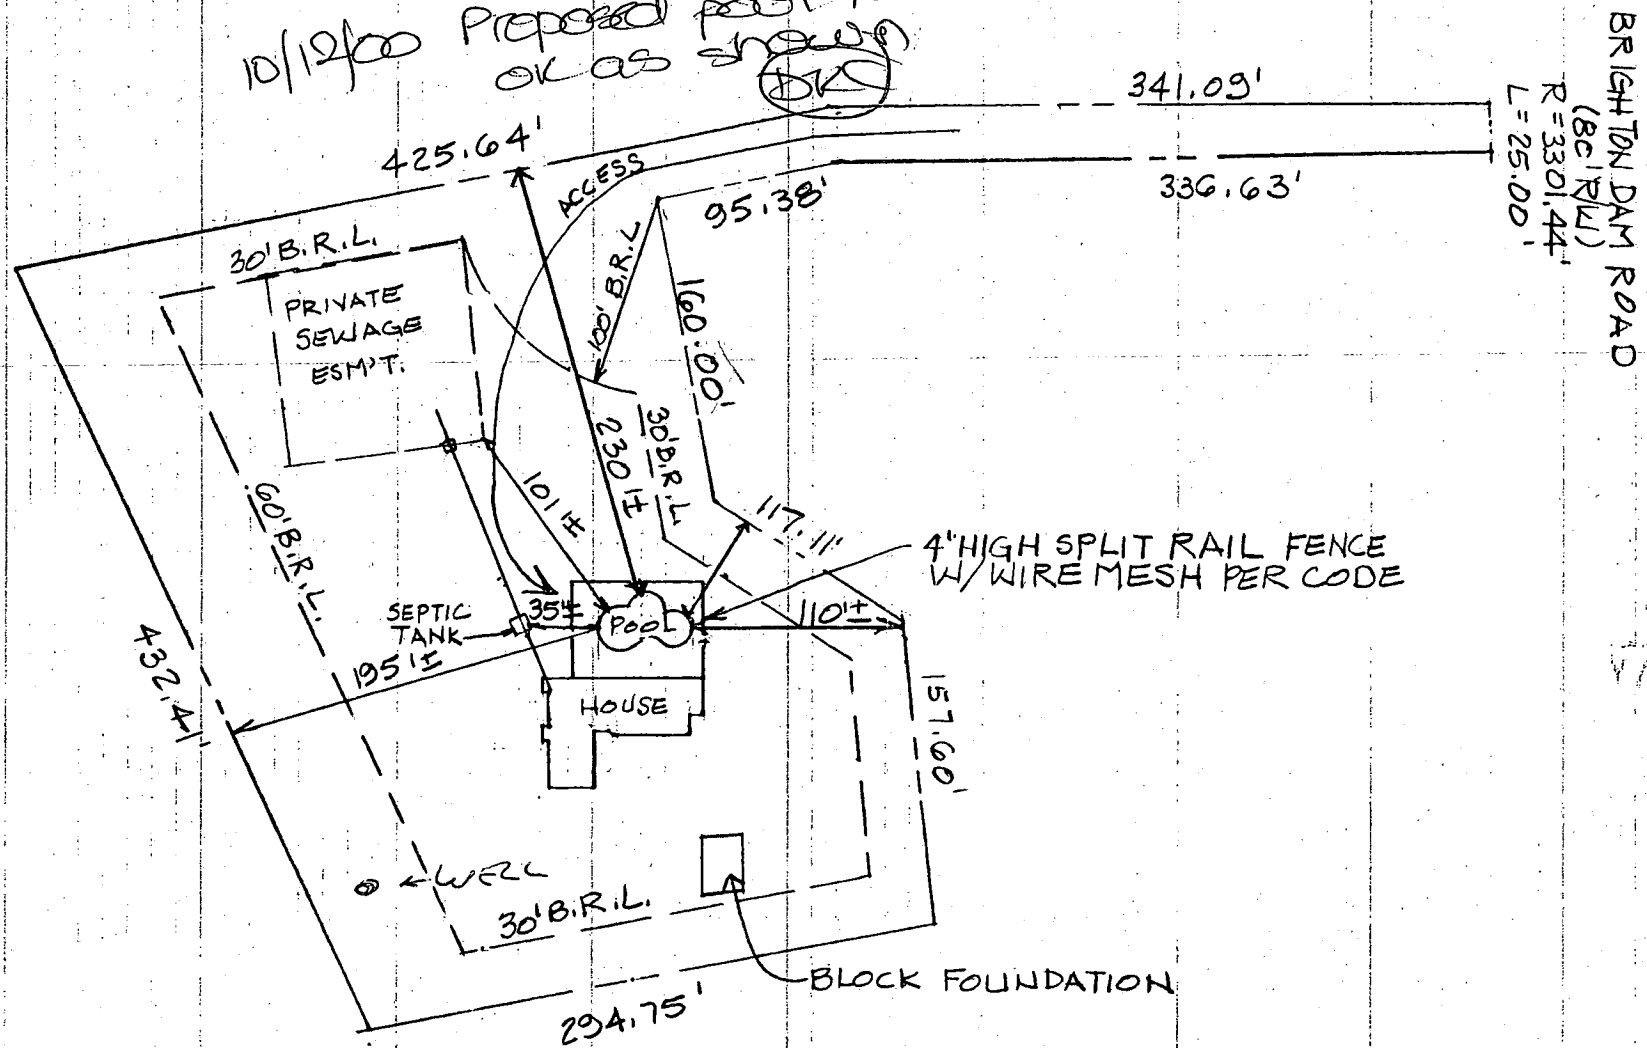 10/12/00 Proposed pool
OK as shown
DKS
341.09'
BRIGHTON DAM ROAD
(80' R/W)
R=3301.44'
L=25.00'
425.64'
ACCESS
95.38'
336.63'
30' B.R.L.
PRIVATE
SEWAGE
ESM'T.
100' B.R.L
160.00'
230'±
30' B.R.L
101'±
117.11'
4'HIGH SPLIT RAIL FENCE
W/WIRE MESH PER CODE
60' B.R.L.
SEPTIC
TANK
35'±
POOL
110'±
195'±
432.41'
HOUSE
157.60'
WELL
30' B.R.L.
BLOCK FOUNDATION
294.75'